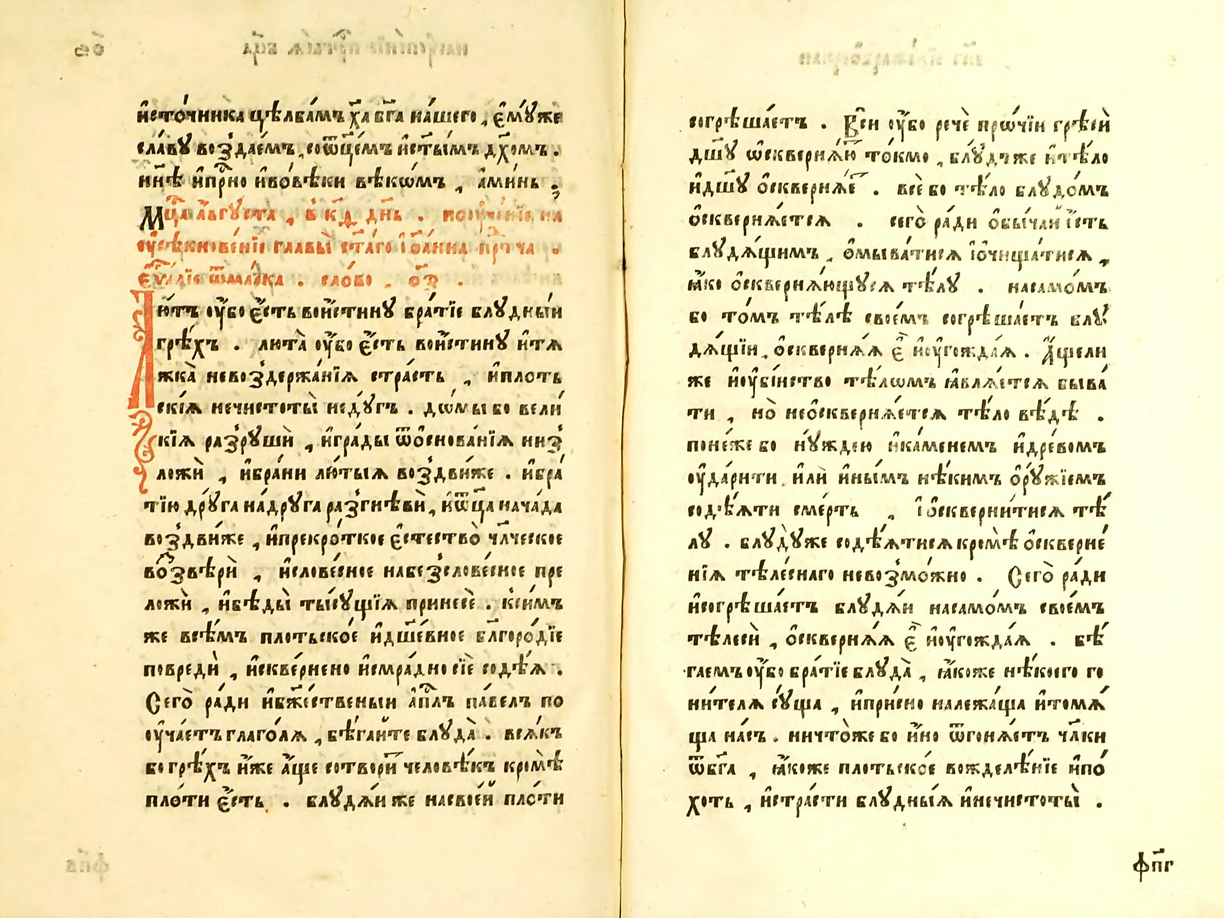 и҆сто́чника цѣлба́мъ х҃а бг҃а на́шего , є҆мꙋ́же
сла́вꙋ воздае́мъ , соѿце́мъ и҆ст҃ы́мъ дх҃омъ .
и҆нн҃ѣ и҆при҇но и҆вовѣки вѣкѡ́мъ , а҆ми́нь .
Мц҇а а҆́вгꙋста , в к҃д дн҃ь . поꙋче́нїе на
оу҆сѣкнове́нїе главы̀ ст҃а́го і҆ѡа́нна пр҇тча .
є҆ѵ҃лїе ѿма́рка . сло́во . о҃в .
Лю́тъ оу҆́бо є҆́сть вои́стинꙋ бра́тїе блꙋ́дный
грѣ́хъ . люта̀ оу҆́бо є҆́сть вои́стинꙋ и҆тѧ
жка̀ невоздержа́нїѧ стра́сть , и҆пло́ть
скїѧ нечистоты̀ недꙋ́гъ . до́мы бо вели́
кїѧ разрꙋшѝ , и҆гра́ды ѿѡснова́нїѧ низ
ложѝ , и҆бра́ни лю́тыѧ воздви́же . и҆бра́
тїю дрꙋ́га на́дрꙋга разгнѣвѝ , и҆ѿц҃а нача́да
воздви́же , и҆прекро́ткое є҆стество̀ чл҃ческое
воѕвѣрѝ , и҆слове́сное набезслове́сное пре
ложѝ , и҆бѣды̀ ты́сꙋщїѧ принесѐ . ксим́ъ
же всѣ́мъ плотьско́е и҆дш҃е́вное бл҃горо́дїе
повредѝ , и҆скве́рнено и҆смра́дно сїѐ содѣ́ѧ .
Сегѡ̀ ра́ди и҆бж҃е́ственый а҆п҇лъ па́велъ по
оу҆ча́етъ глаго́лѧ , бѣ́гайте блꙋда̀ . всѧ́къ
бо грѣ́хъ и҆́же а҆́ще сотвори́т человѣ́къ кромѣ̀
пло́ти є҆́сть . блꙋдѧ́и же насвоеи́ пло́ти
согрѣша́етъ . Всѝ оу҆́бо речѐ прѡ́чїи грѣсѝ
дш҃ꙋ ѡ҆сквернѧ́ю то́кмо , блꙋ́дъ же и҆тѣ́ло
и҆дш҃ꙋ ѡ҆сквернѧ́е . все́ бо тѣ́ло блꙋдо́мъ
ѡ҆сквернѧ́етсѧ . сего̀ ра́ди ѡ҆бы́чай є҆́сть
блꙋдѧ́щимъ , ѡ҆мыва́тисѧ і҆ѡчища́тисѧ ,
ꙗ҆́ко ѡ҆сквернѧ́ющꙋсѧ тѣ́лꙋ . насамо́мъ
бо то́мъ тѣ́лѣ свое́мъ согрѣша́етъ блꙋ́
дѧ́щїи , ѡ҆сквернѧ́ѧ є҆̀ и҆оу҆гожда́ѧ . А҆́щели
же и҆оу҆бі́йство тѣлѡ́мъ ꙗ҆влѧ́етсѧ быва́
ти , но̀ неѡ҆сквернѧ́етсѧ тѣ́ло вѣ́дѣ .
поне́же бо нꙋ́ждею и҆ка́менемъ и҆дре́вомъ
оу҆да́рити и҆лѝ и҆ны́мъ нѣ́кимъ ѻ҆рꙋ́жїемъ
содѣ́ѧти сме́рть , і҆ѡскверни́тисѧ тѣ́
лꙋ . блꙋ́дꙋже содѣ́ѧтисѧ кромѣ̀ ѡ҆скверне́
нїѧ тѣле́снаго невозмо́жно . Сего̀ ра́ди
и҆согрѣша́етъ блꙋдѧ́и насамо́мъ свое́мъ
тѣлесѝ , ѡ҆сквернѧ́ѧ є҆̀ и҆оу҆гожда́ѧ . бѣ́
гаемъ оу҆́бо бра́тїе блꙋда̀ , ꙗ҆́коже нѣ́коего го
ни́телѧ сꙋ́ща , и҆при́сно належа́ща и҆томѧ́
ща на́съ . ничто́же бо и҆́но ѿгонѧ́етъ чл҃ки
ѿбг҃а , ꙗ҆́коже плотьско́е вожделѣ́нїе и҆по́
хоть , и҆стра́сти блꙋ́дныѧ и҆нечистоты̀ .
фп҃г